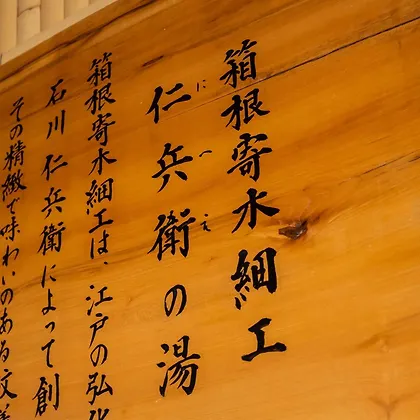 箱根寄木細工
仁兵衛の湯
にへえ
箱根寄木細工は、江戸の弘化
石川仁兵衛によって創
その精緻で味わいのある文